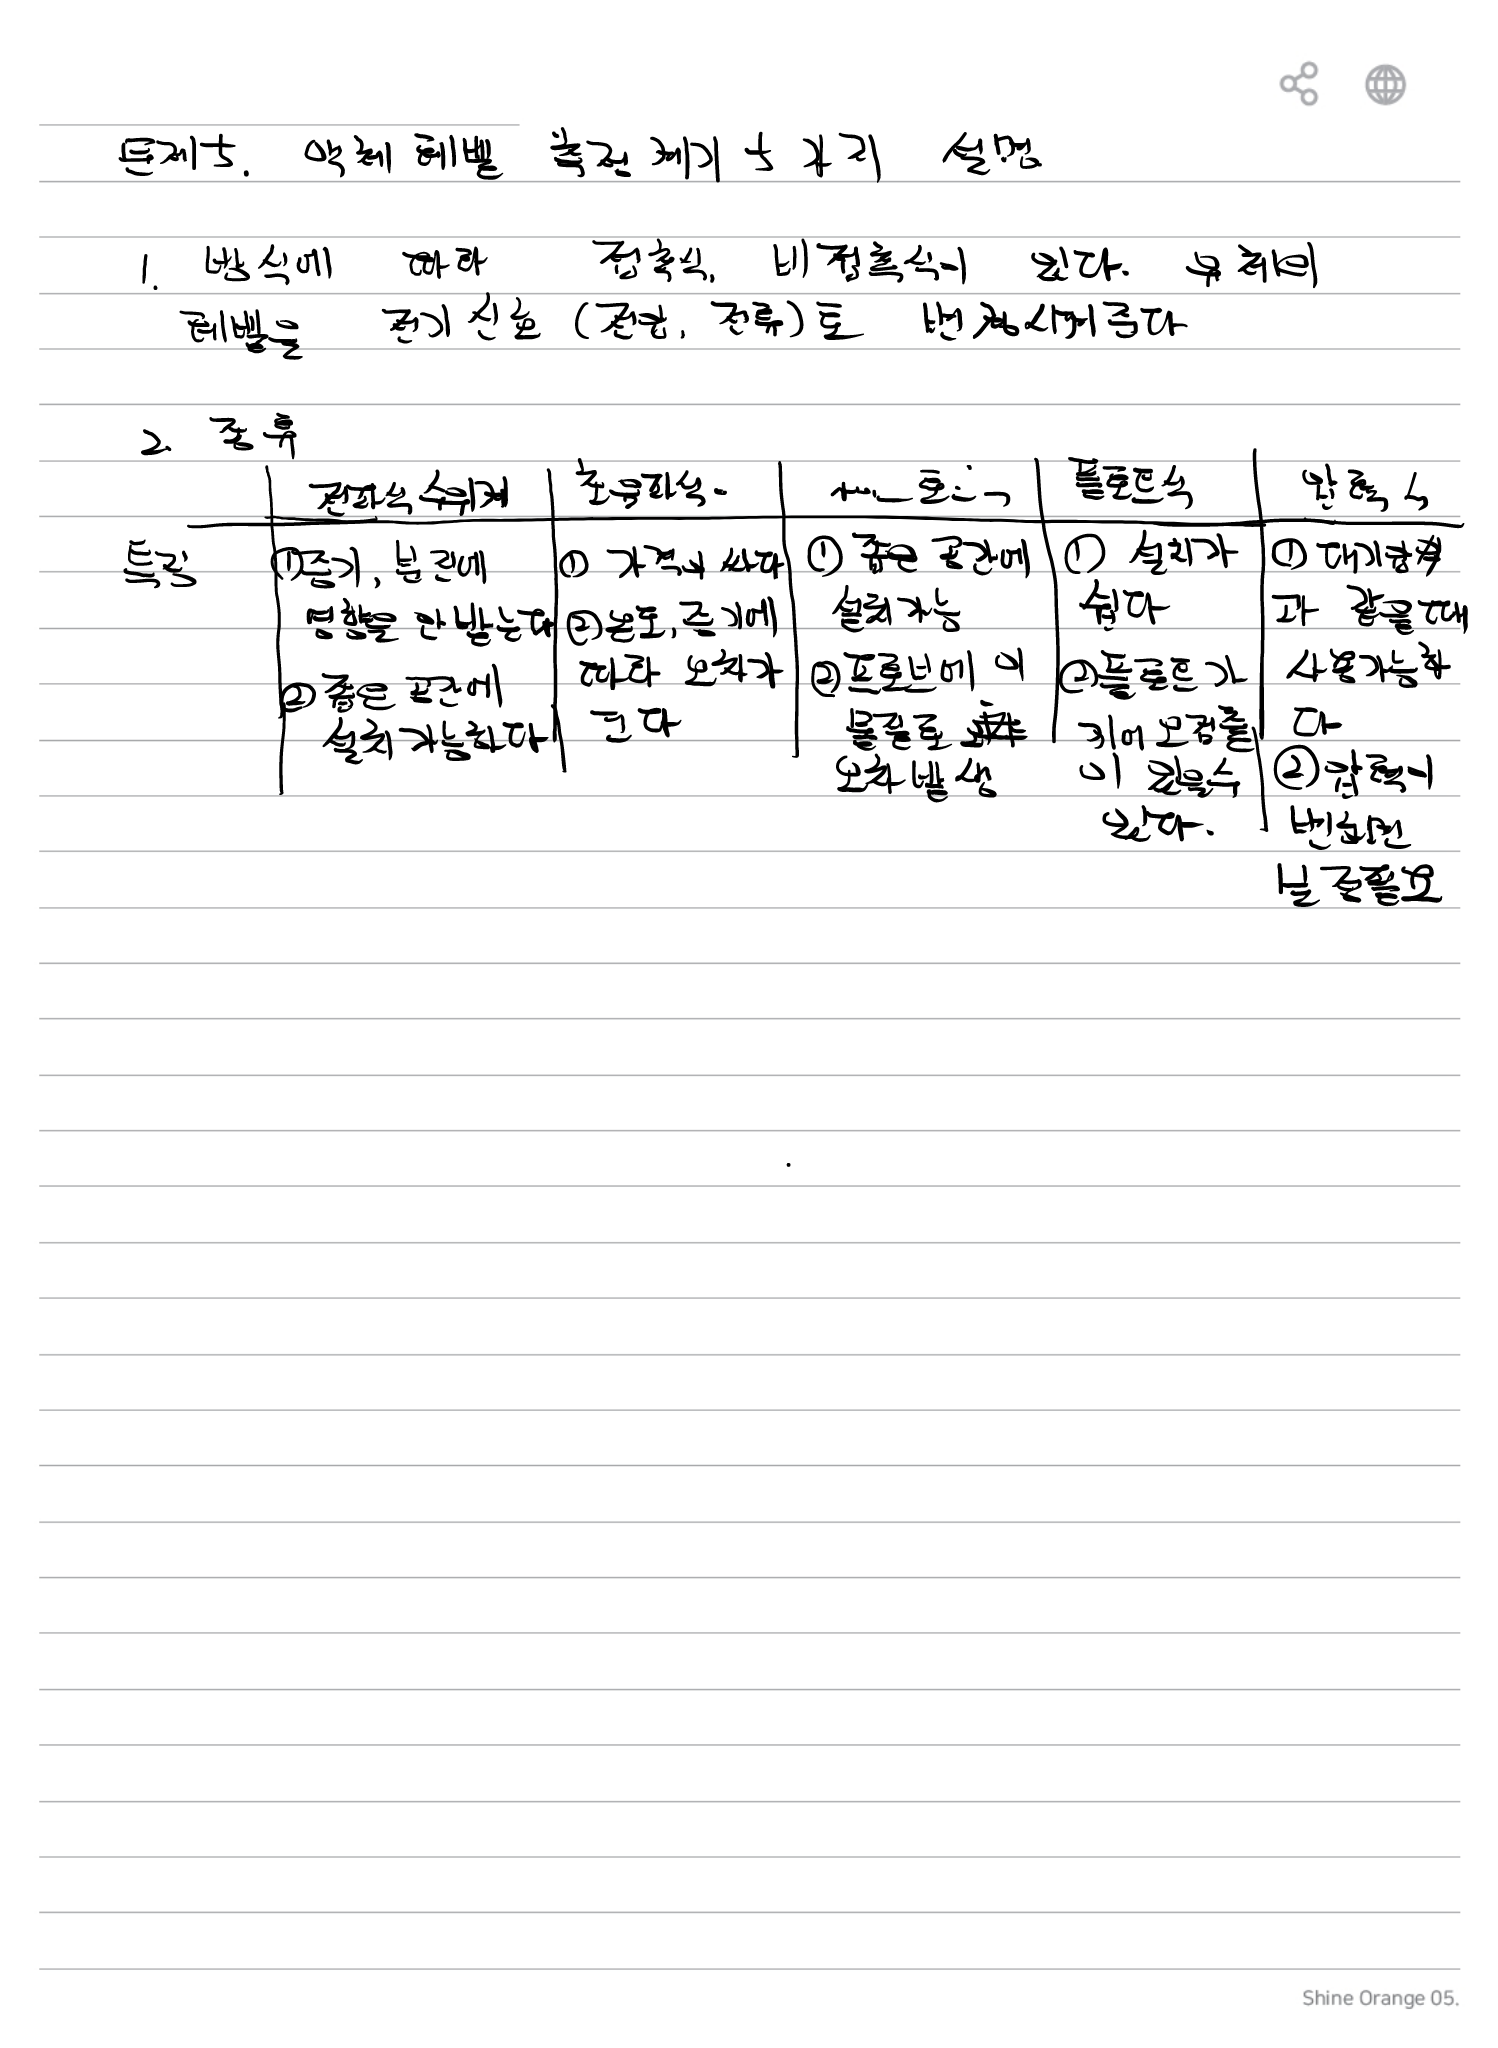 문제5. 액체 레벨 측정 계기 5가지 설명
1. 방식에 따라 접촉식, 비접촉식이 있다. 유체의
레벨을 전기신호 (전압, 전류)로 변경시켜준다
2. 종류
전파식 수위계 초음파식. 플로트식 압력식
특징
①증기, 분진에
영향을 안 받는다
② 좁은 공간에
설치 가능하다
① 가격이 싸다
②온도, 증기에
따라 오차가
크다
① 좁은 공간에
설치가능
②프로브에 이
물질로
오차 발생
① 설치가
쉽다
②플로트가
끼어 오검출
이 있을수
있다.
① 대기압
과 같을때
사용가능하
다
②압력이
변하면
보정필요
Shine Orange 05.